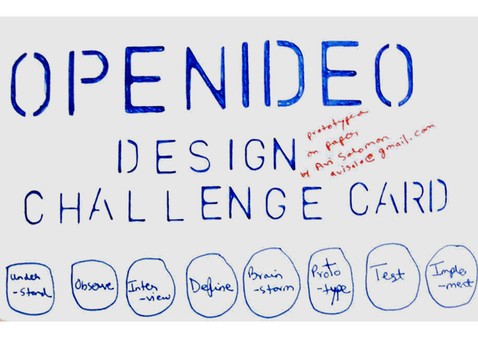 OPENIDEO
DESIGN
CHALLENGE CARD
prototyped
on paper
by Avi Solomon
avisolo@gmail.com
Under
-stand
Observe
Inter
-view
Define
Brain
-storm
Proto
-type
Test
Imple
-ment